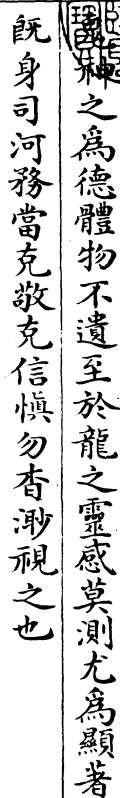 神之為德體物不遺至於龍之靈感莫測尤為顯著
既身司河務當克敬克信慎勿杳渺視之也